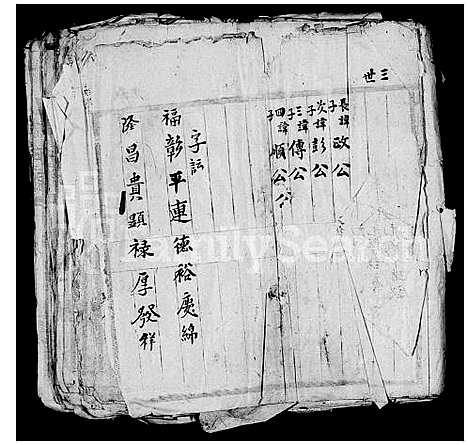 三世
長子諱政公
次子諱彭公
三子諱傳公
四子諱順公
字訣
福彰平連德裕慶綿
隆昌貴顕禄厚發祥
FamilySearch